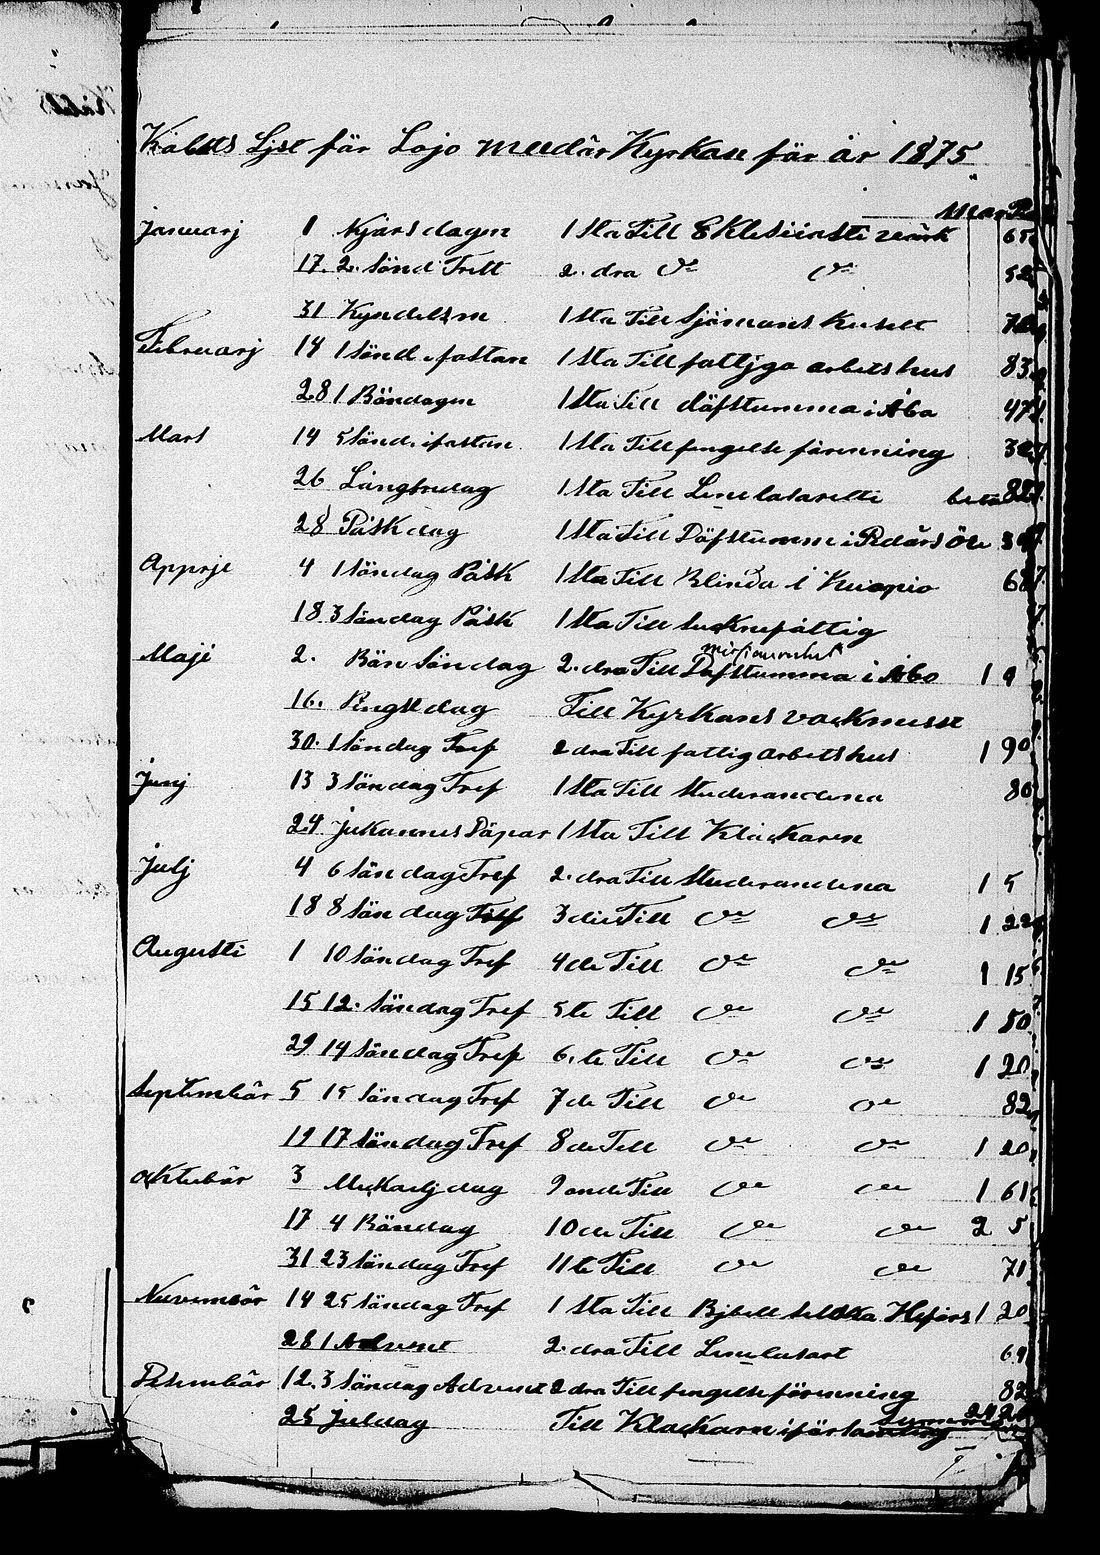 Kålets Ljst får Lojo meedår Kyrkan får år 1875
Mar Pe
januarj 1 Njårsdagen 1 sta Till Eklesiiasti värk 65
17. 2. sönd Trett 2. dra do do 52
31 Kyndelsm 1 sta Till Sjömans Huselt
Februarj 14 1 sönd. fastan 1 sta Till fattjga arbets hus 83
28 1 Böndagen 1 sta Till döfstumma i Åbo 47
Mars 14 5 sönd. i fastan 1 sta Till fengelse förenning
26 Långfredag 1 sta Till Lenslasaretti
28 Påsk dag 1 sta Till Döfstumme i Pedårs Öre
Apprje 4 1 söndag Påsk 1 sta Till Blinda i Kuopio
18 3 söndag Påsk 1 sta Till sucknefattig
Maji 2. Bön Söndag 2. dra Till Döfstumma i Åbo 1 9
16. Pingst dag Till Kyrkans vackmest
30. 1 söndag Tref 2 dra Till fattig arbets hus 1 90
junj 13 3 söndag Tref 1 sta Till studerandena 80
24 jukannes Döpar 1 sta Till Klåckaren
julj 4 6 söndag Tref 2. dra Till studerandena 1 5
18 8 sön dag Tref 3 die Till do do 1 22
Augusti 1 10 söndag Tref 4 de Till do do 1 15
15 12. söndag Tref 5 te Till do do 1 50
29 14 söndag Tref 6. te Till do do 1 20
Septembär 5 15 söndag Tref 7 de Till do do 82
19 17 söndag Tref 8 de Till do do 1 20
oktubär 3 Mickaelj dag 9 onde Till do do 1 61
17 4 Böndag 10 de Till do do 2 5
31 23 söndag Tref 11 te Till do do 71
Nuvembär 14 25 söndag Tref 1 sta Till Bjbell sellska Hefors 1 20
28 1 Advent 2. dra Till Lenslasart 69
Desembär 12. 3 söndag Advent 2 dra Till fengelse förenning 82
25 juldag Till Klackaren i församling